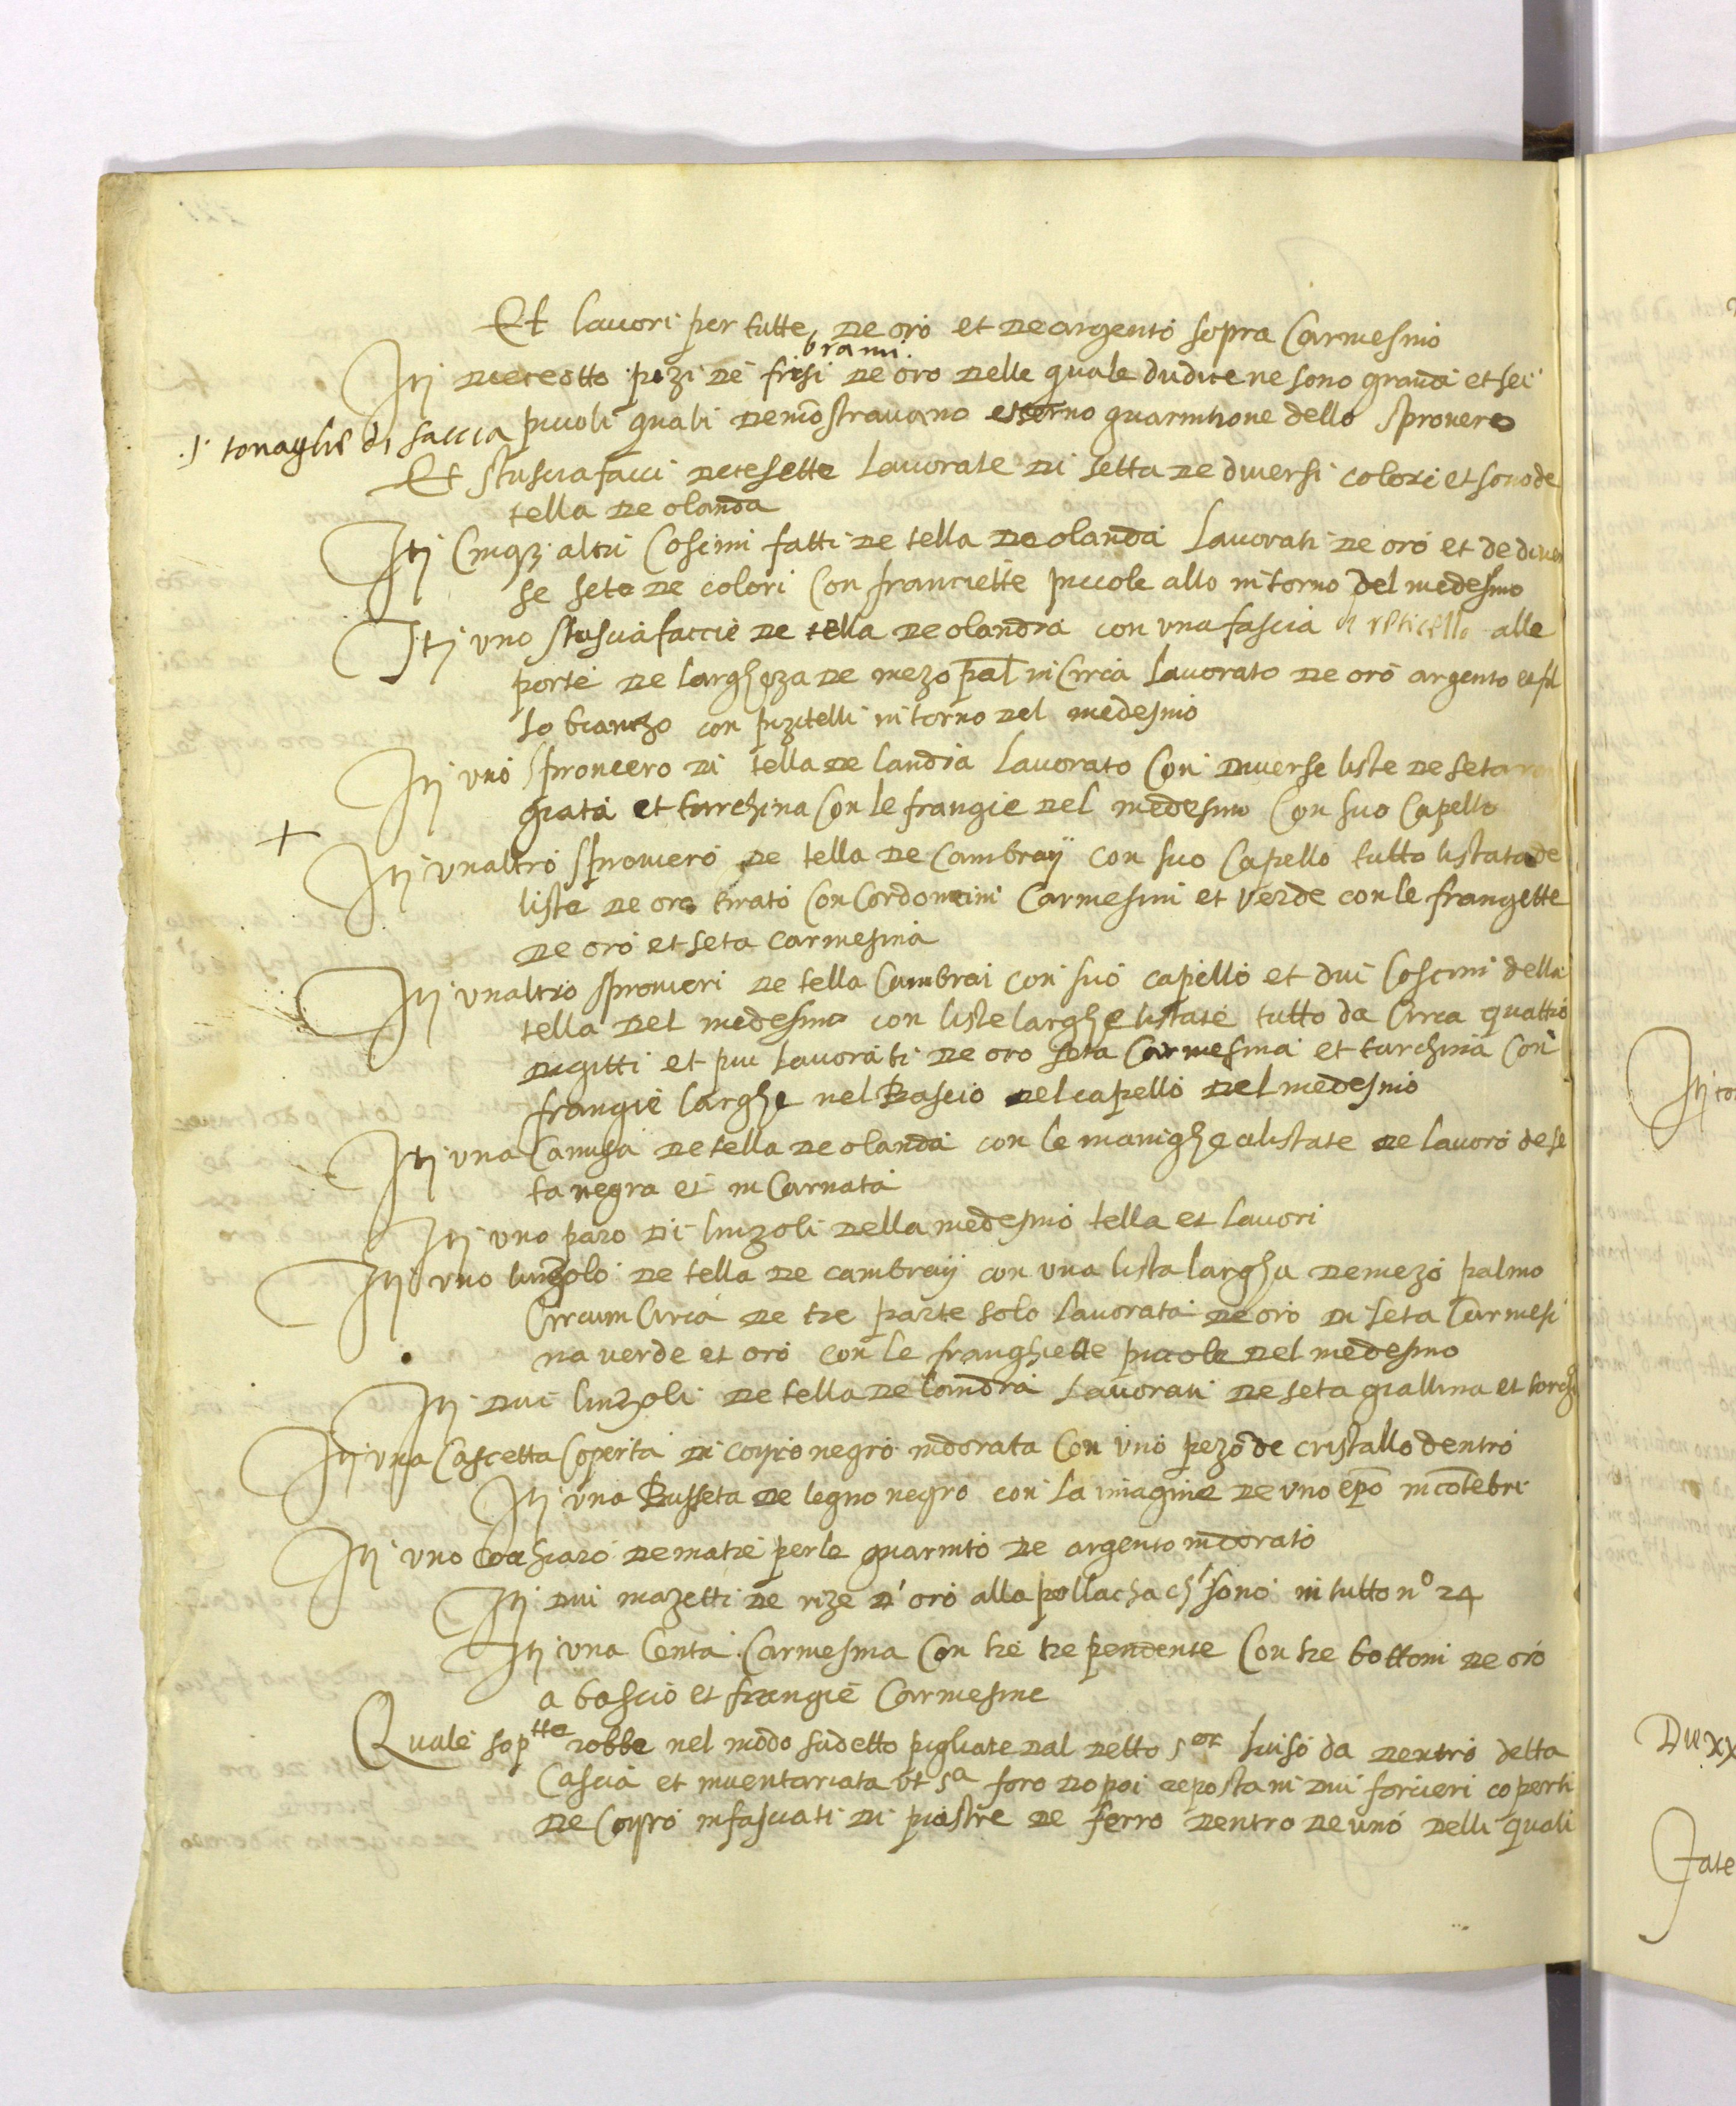 Et lavori per tutte, de oro et de argento sopra Carmesino
brami.
Itj deceotto pezi de frisi de oro delle quale dudice ne sono grandi et sei
piccoli quali demostravano esserno guarnitione dello sprovero
.j. tovaglie di faccia
Et stusciafacci decesette lavorate di setta de diversi colori et sono de
tella de olanda
Itj Cinqz altri Coscini fatti de tella de olanda lavorati de oro et de diver
se sete de colori Con franciette piccole allo intorno del medesmo
Itj uno stusciafaccie de tella de olandia con una fascia di reticello alle
porte de largheza de mezo pal in Circa lavorato de oro argento et fil
lo biancho con pizitelli intorno del medesmo
Itj uno sproviero di tella de landia lavorato Con diverse liste de seta
giata et torchina Con le frangie del medesmo Con suo Capello
+
Itj unaltro sproviero de tella de Cambraÿ con suo Capello tutto listata de
liste de oro tirato Con Cordoncini Carmesini et verde con le frangette
de oro et seta carmesina
Itj unaltro sprovieri de tella Cambrai con suo capello et dui Coscini della
tella del medesmo con liste larghe listate tutto da Circa quattro
digitti et piu lavorati de oro seta Carmesina et turchina Con
frangie larghe nel Bascio del capello del medesmo
Itj una Camisa de tella de olanda con le manighe alistate de lavoro de se
ta negra et inCarnata
Itj uno paro di linzoli della medesmo tella et lavori
Itj uno linzolo de tella de cambraÿ con una lista largha de mezo palmo
Circum Circa de tre parte solo lavorata de oro di seta Carmesi
na verde et oro con le franghiette piccole del medesmo
Itj dui linzoli de tella de londra lavorati de seta giallina et torchi
Itj una Cascetta Coperta di coyro negro indorata Con uno pezo de cristallo dentro
Itj una Busseta de legno negro con la imagine de uno epo in
Itj uno Cochiaro de matre perle guarnito de argento indorato
Itj dui mazetti de rize d'oro alla pollacha ch' sono in tutto no 24
Itj una Centa Carmesina Con tre tre pendente Con tre bottoni de oro
a bascio et frangie Carmesine
Quale soptte robbe nel modo sudetto pigliate dal detto sor luiso da dentro detta
Cascia et inventariata ut sa foro dopoi reposta in dui forcieri coperti
de Coyro infasciati di piastre de ferro dentro de uno delli quali